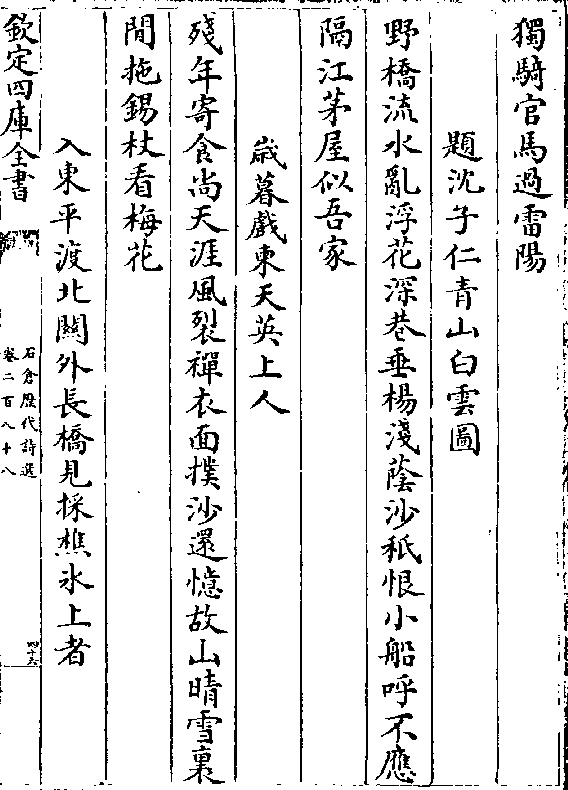 獨騎官馬過雷陽
題沈子仁青山白雲圖
野橋流水亂浮花深巷垂楊淺蔭沙秖恨小船呼不應
隔江茅屋似吾家
歳暮戲東天英上人
殘年寄食尚天涯風裂禪衣面撲沙還憶故山晴雪裏
閒拖錫杖看梅花
入東平渡北闗外長橋見採樵氷上者
欽定四庫全書
石倉歴代詩選
卷二百八十八
四十六